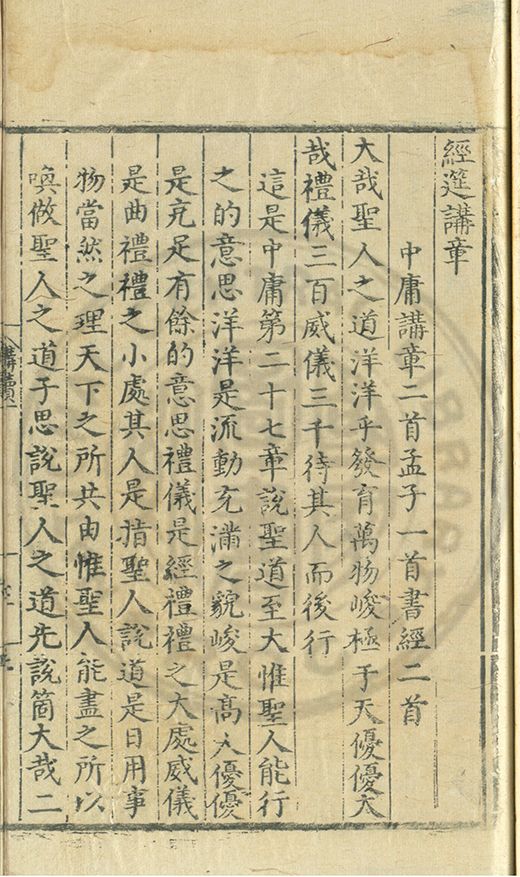 經筵講章
中庸講章二首孟子一首書經二首
大哉聖人之道洋洋乎發育萬物峻極于天優優大
哉禮儀三百威儀三千待其人而後行
這是中庸第二十七章說聖道至大惟聖人能行
之的意思洋洋是流動充滿之貌峻是高大優優
是充足有餘的意思禮儀是經禮禮之大處威儀
是曲禮禮之小處其人是指聖人說道是日用事
物當然之理天下之所共由惟聖人能盡之所以
喚做聖人之道子思說聖人之道先說箇大哉二
講讀一